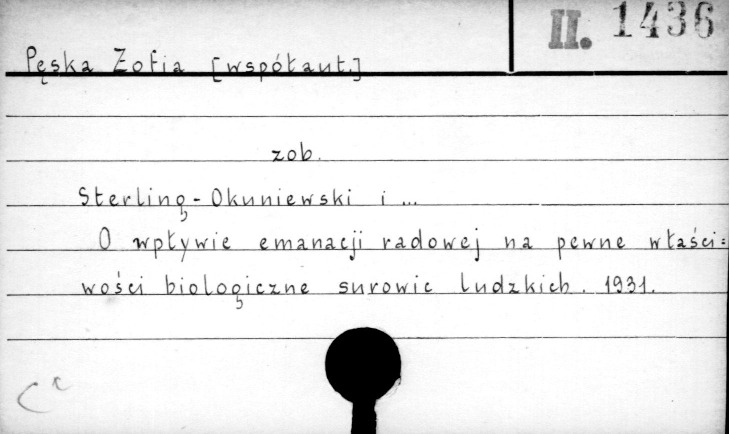 II. 1436
Pęska Zofia [współaut.]
zob.
Sterling-Okuniewski i ...
O wpływie emanacji radowej na pewne właści=
wości biologiczne surowic ludzkich. 1931.